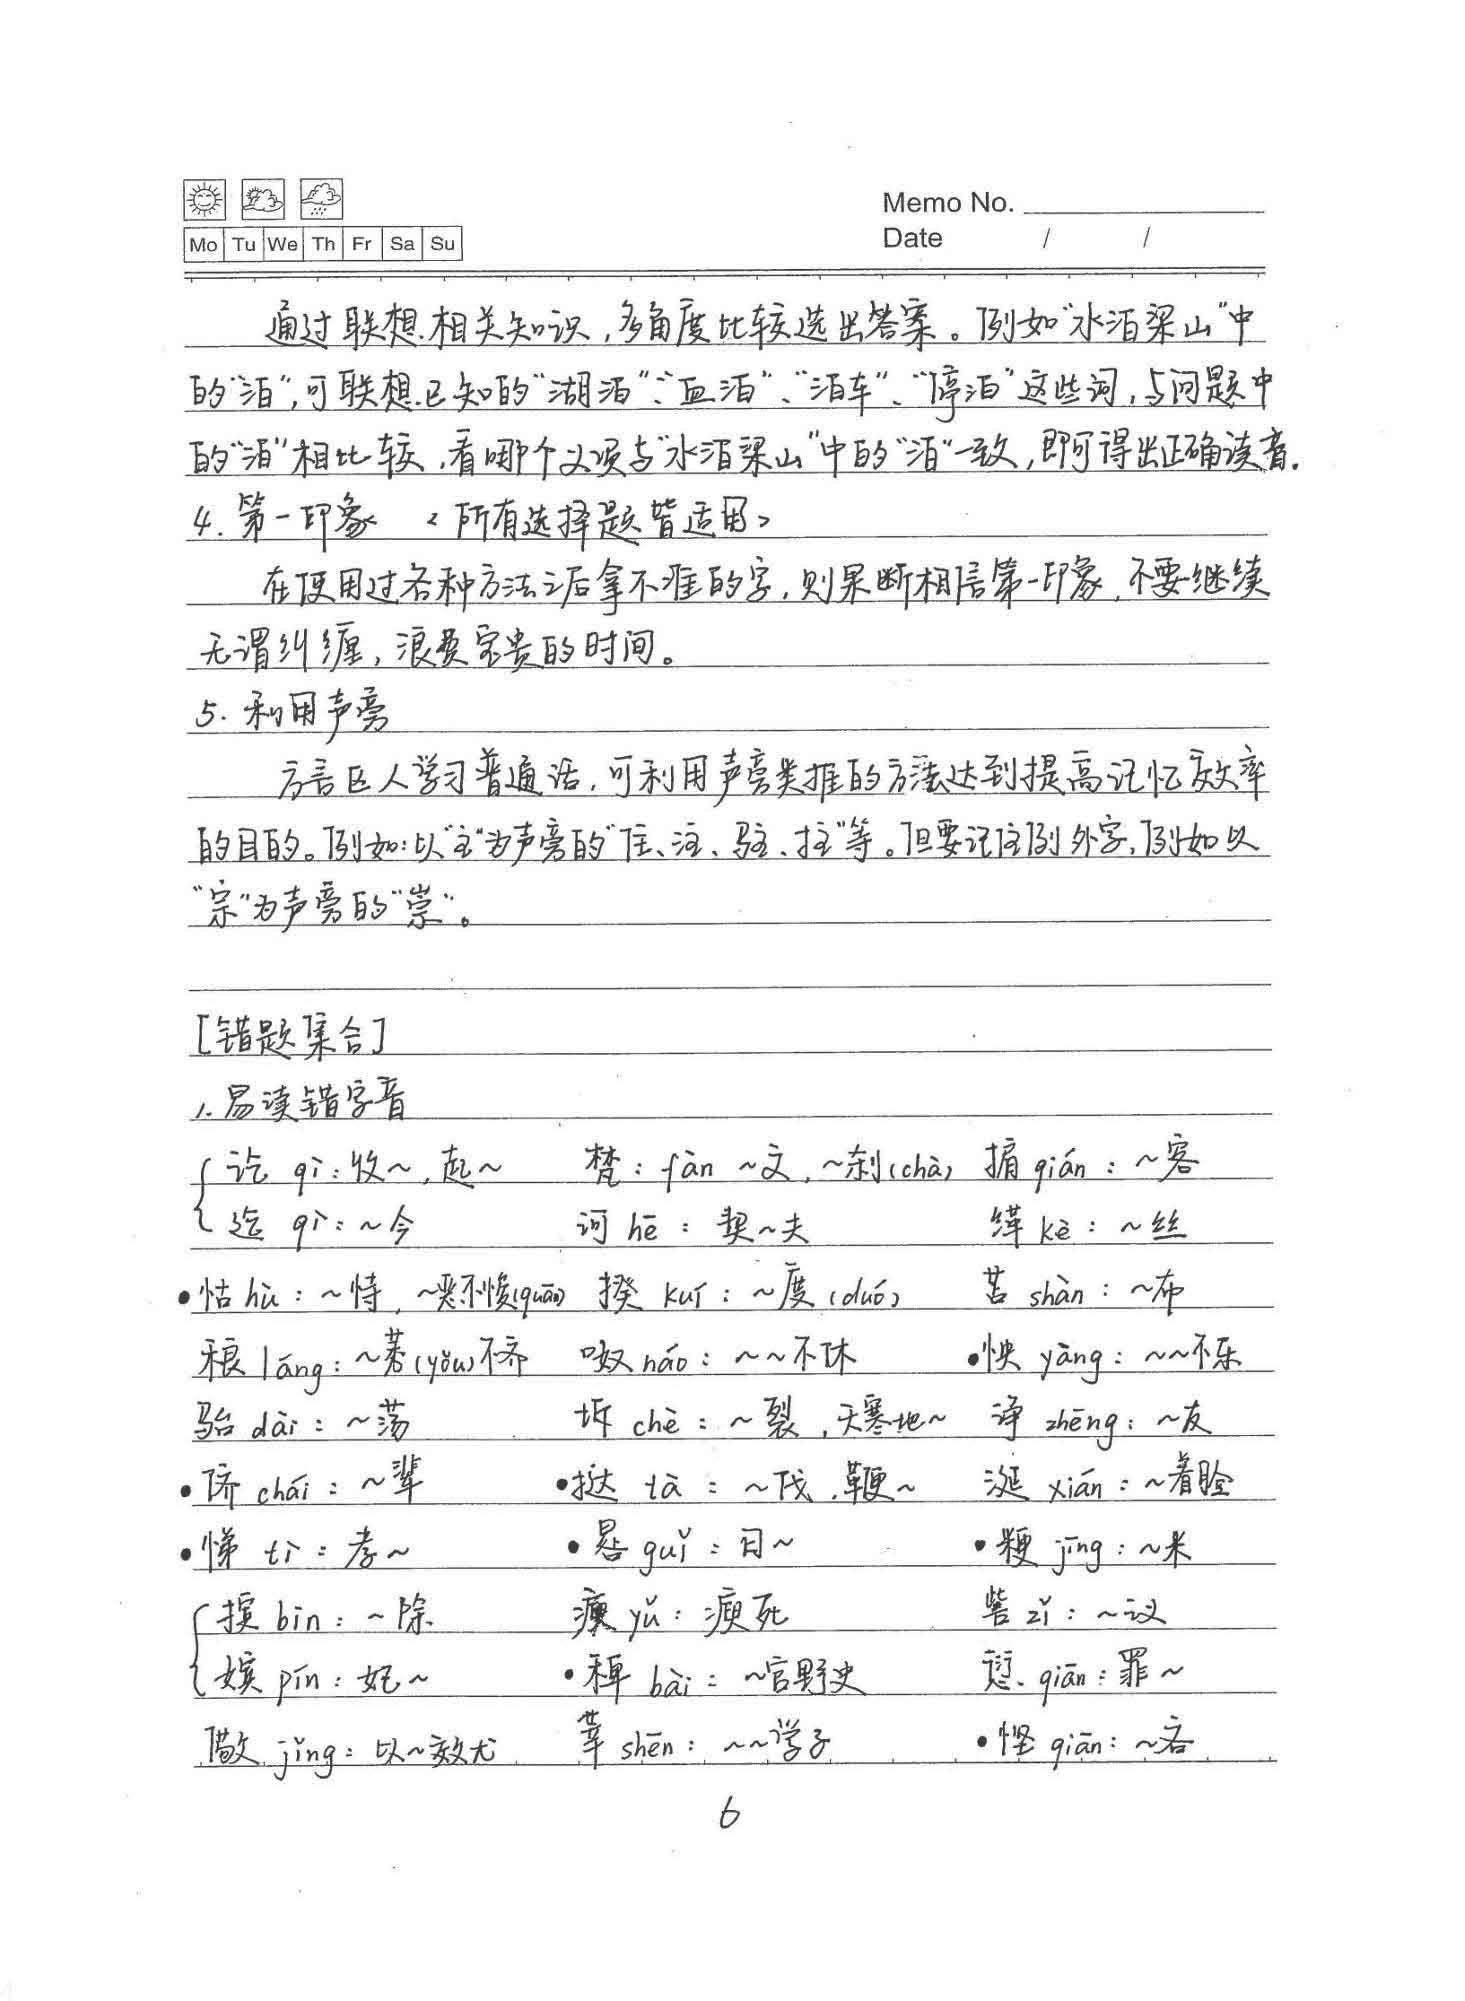 Memo No.
Mo Tu We Th Fr Sa Su
Date / /
通过联想相关知识,多角度比较选出答案。例如"水泊梁山"中
的"泊",可联想已知的"湖泊"、"血泊"、"泊车"、"停泊"这些词,与问题中
的"泊"相比较,看哪个义项与"水泊梁山"中的"泊"一致,即可得出正确读音.
4. 第一印象 〈所有选择题皆适用〉
在使用过各种方法之后拿不准的字,则果断相信第一印象,不要继续
无谓纠缠,浪费宝贵的时间。
5. 利用声旁
方言区人学习普通话,可利用声旁类推的方法达到提高记忆效率
的目的。例如:以"主"为声旁的"住、注、驻、拄"等。但要记住例外字,例如以
"宗"为声旁的"崇"。
[错题集合]
1. 易读错字音
讫 qì:收~,起~ 梵:fàn ~文,~刹(chà) 掮 qián:~客
迄 qì:~今 诃 hē:契~夫 缂 kè:~丝
•怙 hù:~恃,~恶不悛(quān) 揆 kuí:~度(duó) 苫 shàn:~布
稂 láng:~莠(yǒu)不齐 呶 náo:~~不休 •怏 yàng:~~不乐
骀 dài:~荡 坼 chè:~裂,天寒地~ 诤 zhēng:~友
•侪 chái:~辈 •挞 tà:~伐,鞭~ 涎 xián:~着脸
•悌 tì:孝~ •晷 guǐ:日~ •粳 jīng:~米
摈 bìn:~除 瘐 yǔ:瘐死 訾 zǐ:~议
嫔 pín:妃~ •稗 bài:~官野史 愆 qiān:罪~
儆 jǐng:以~效尤 莘 shēn:~~学子 •悭 qiān:~吝
6